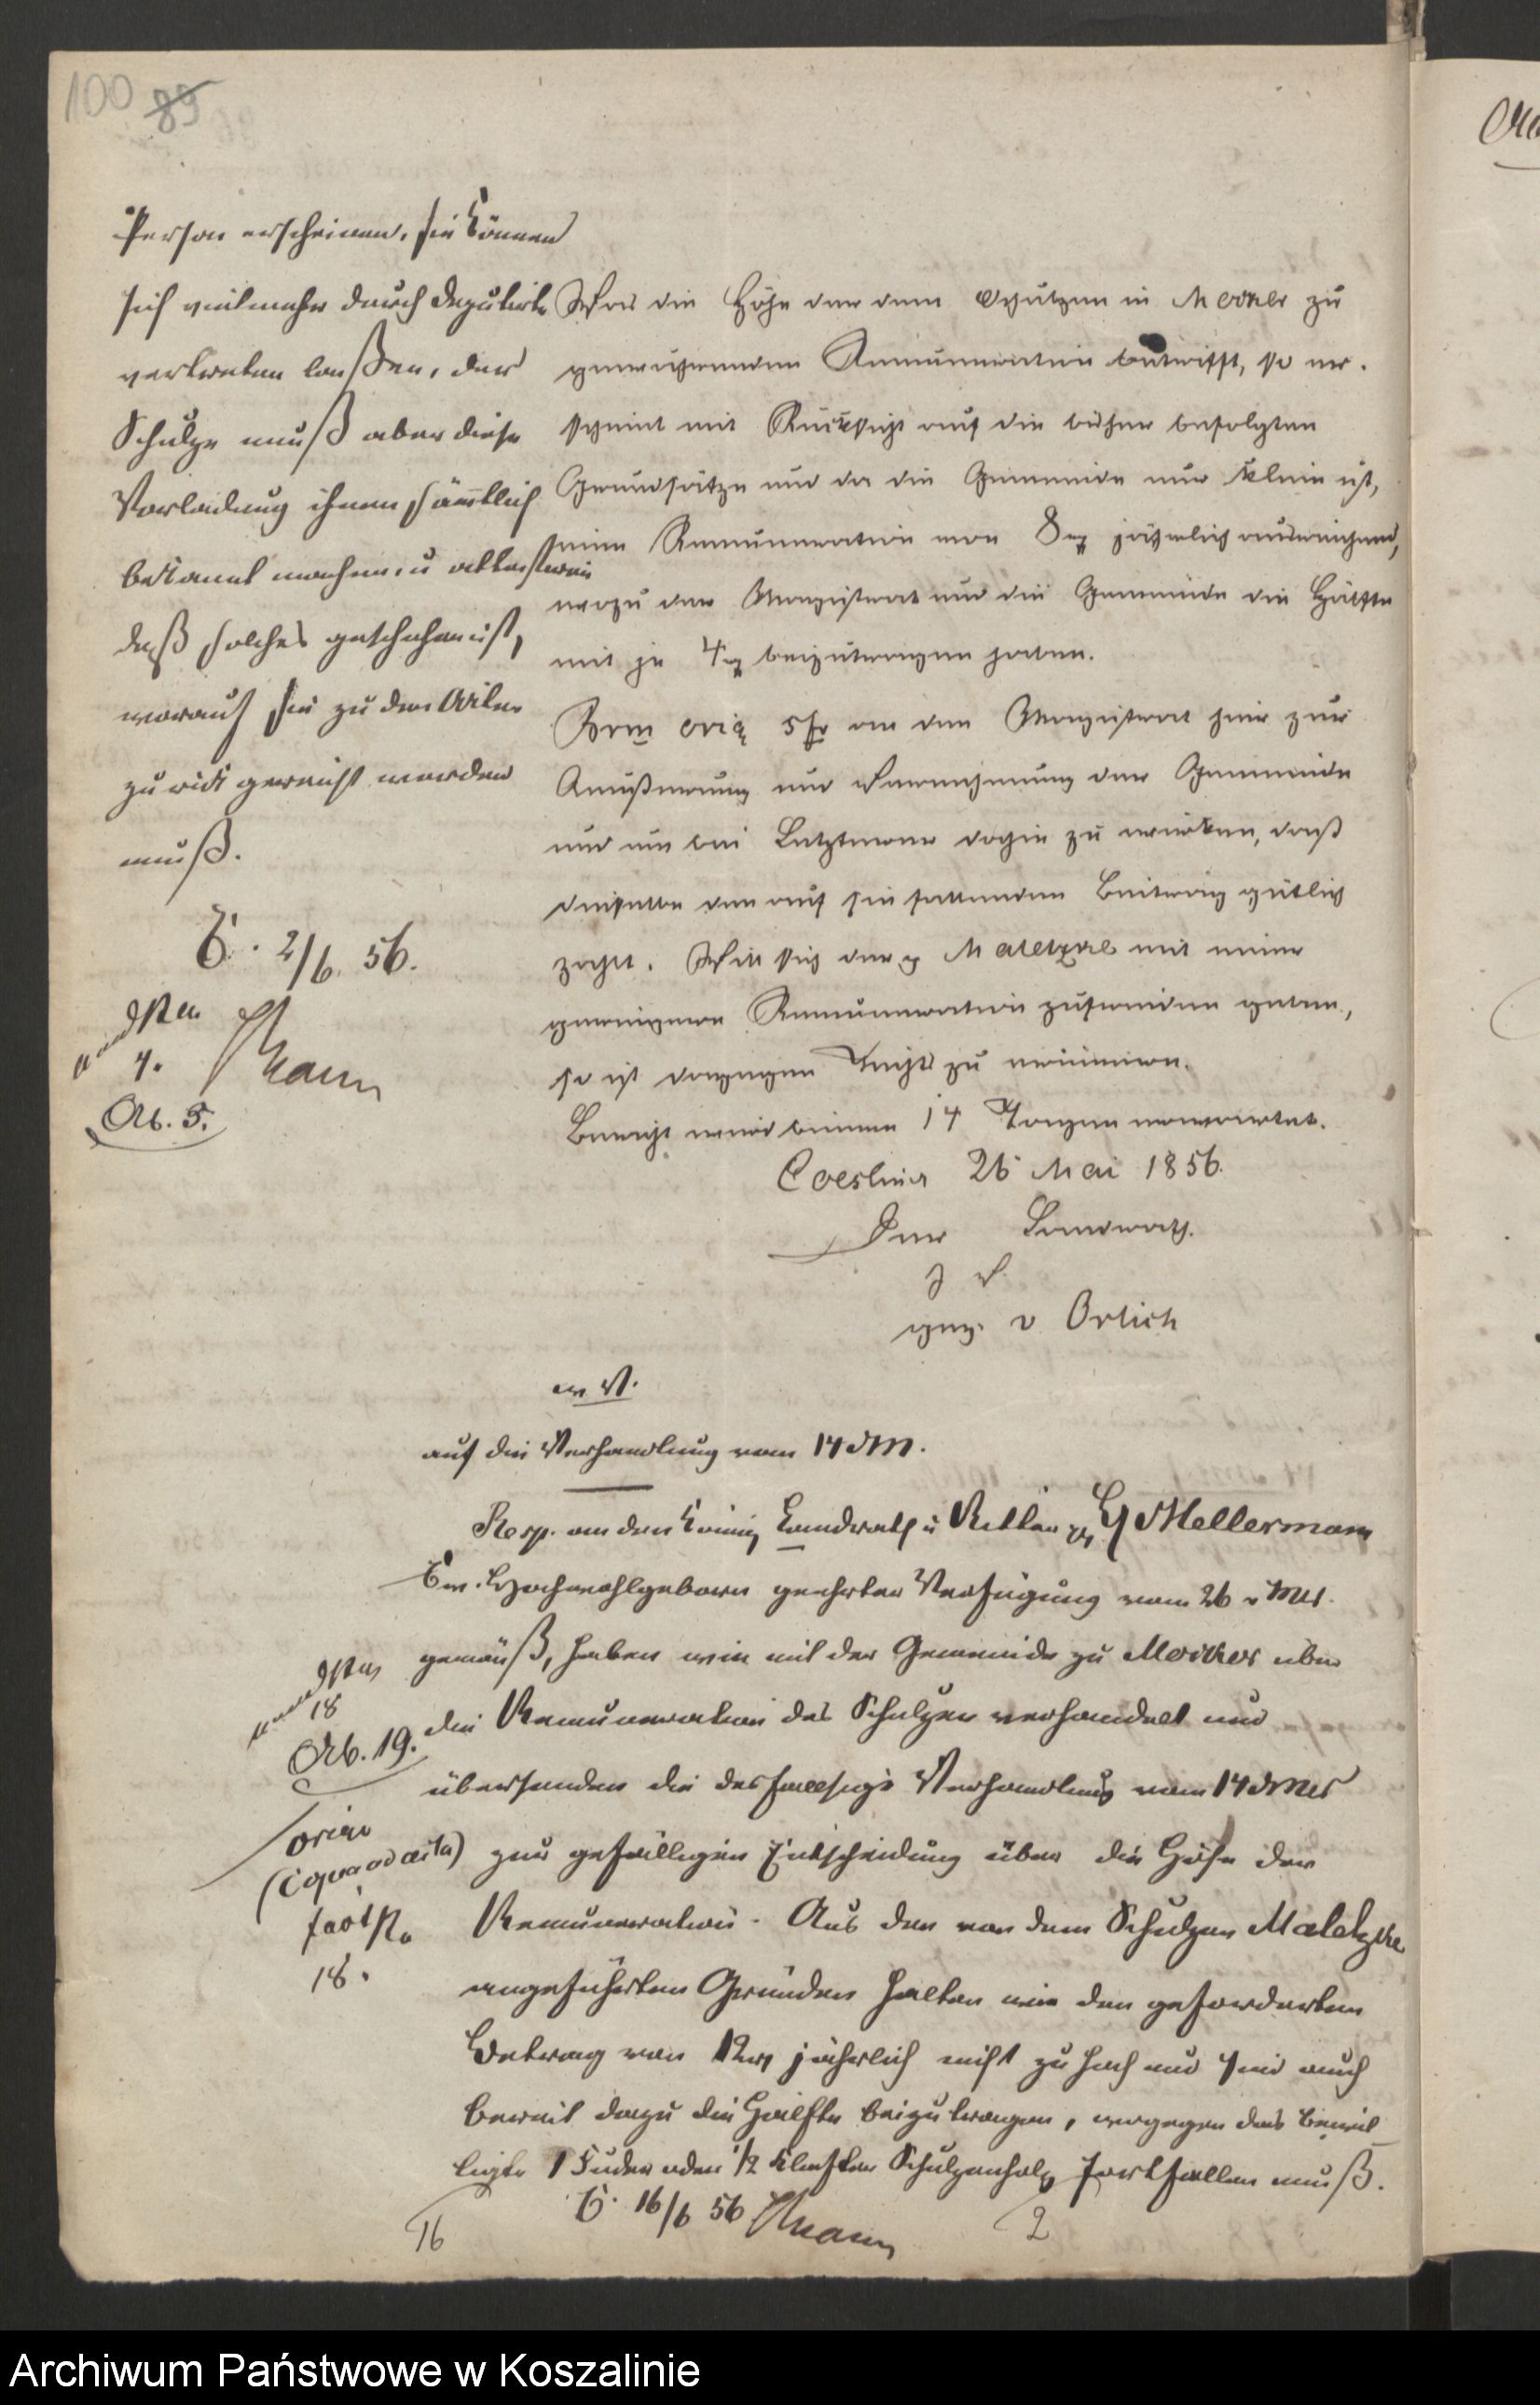 100 89
Person erscheinen, sie können
sich vielmehr durch Deputirte
vertreten laßen, der
Schulze muß aber diese
Vorladung ihnen sämtlich
bekannt machen u attestiren
daß solches geschehen ist,
worauf sie zu den Acten
zurück gereicht werden
muß.
C. 2/6. 56.
4.
Ab. 5.
Was die Höhe der dem Schulzen in Mocker zu
gewährenden Remuneration betrifft, so er-
scheint mit Rücksicht auf die bisher befolgten
Grundsätze und da die Gemeinde nur klein ist,
eine Remuneration von 8 rg jährlich ausreichend,
wozu der Magistrat und die Gemeinde die Hälfte
mit je 4 rg beizutragen haben.
Brm orig s fr an den Magistrat hier zur
Aeußerung und Vernehmung der Gemeinde
und um bei Letzterer dahin zu wirken, daß
dieselbe den auf sie fallenden Beitrag gütlich
zahlt. Will sich der p Maletzke mit einer
geringeren Remuneration zufrieden geben,
so ist dagegen Nichts zu erinnern.
Bericht wird binnen 14 Tagen erwartet.
Coeslin 26 Mai 1856.
Der Landrath.
J V.
gez. v Orlich
V.
auf die Verhandlung vom 14 d M.
Resp. an den Königl Landrath u Ritter pp
Ew. Hochwohlgeborn geehrter Verfügung vom 26 v Mts.
gemäß, haben wir mit der Gemeinde zu Mocker über
die Remuneration des Schulzen verhandelt und
übersenden die desfallsige Verhandlung vom 14 d Mts
zur gefälligen Entscheidung über die Höhe der
Remuneration. Aus den von dem Schulzen Maletzke
angeführten Gründen halten wir den geforderten
Betrag von 12 rg jährlich nicht zu hoch und sind auch
bereit dazu die Hälfte beizutragen, wogegen das bewil
ligte 1 Fuder oder 1/2 Klafter Schulzenholz fortfallen muß.
C. 16/6 56
18
Ab. 19.
orig
(Copia ad acta)
18.
16
2
Archiwum Państwowe w Koszalinie